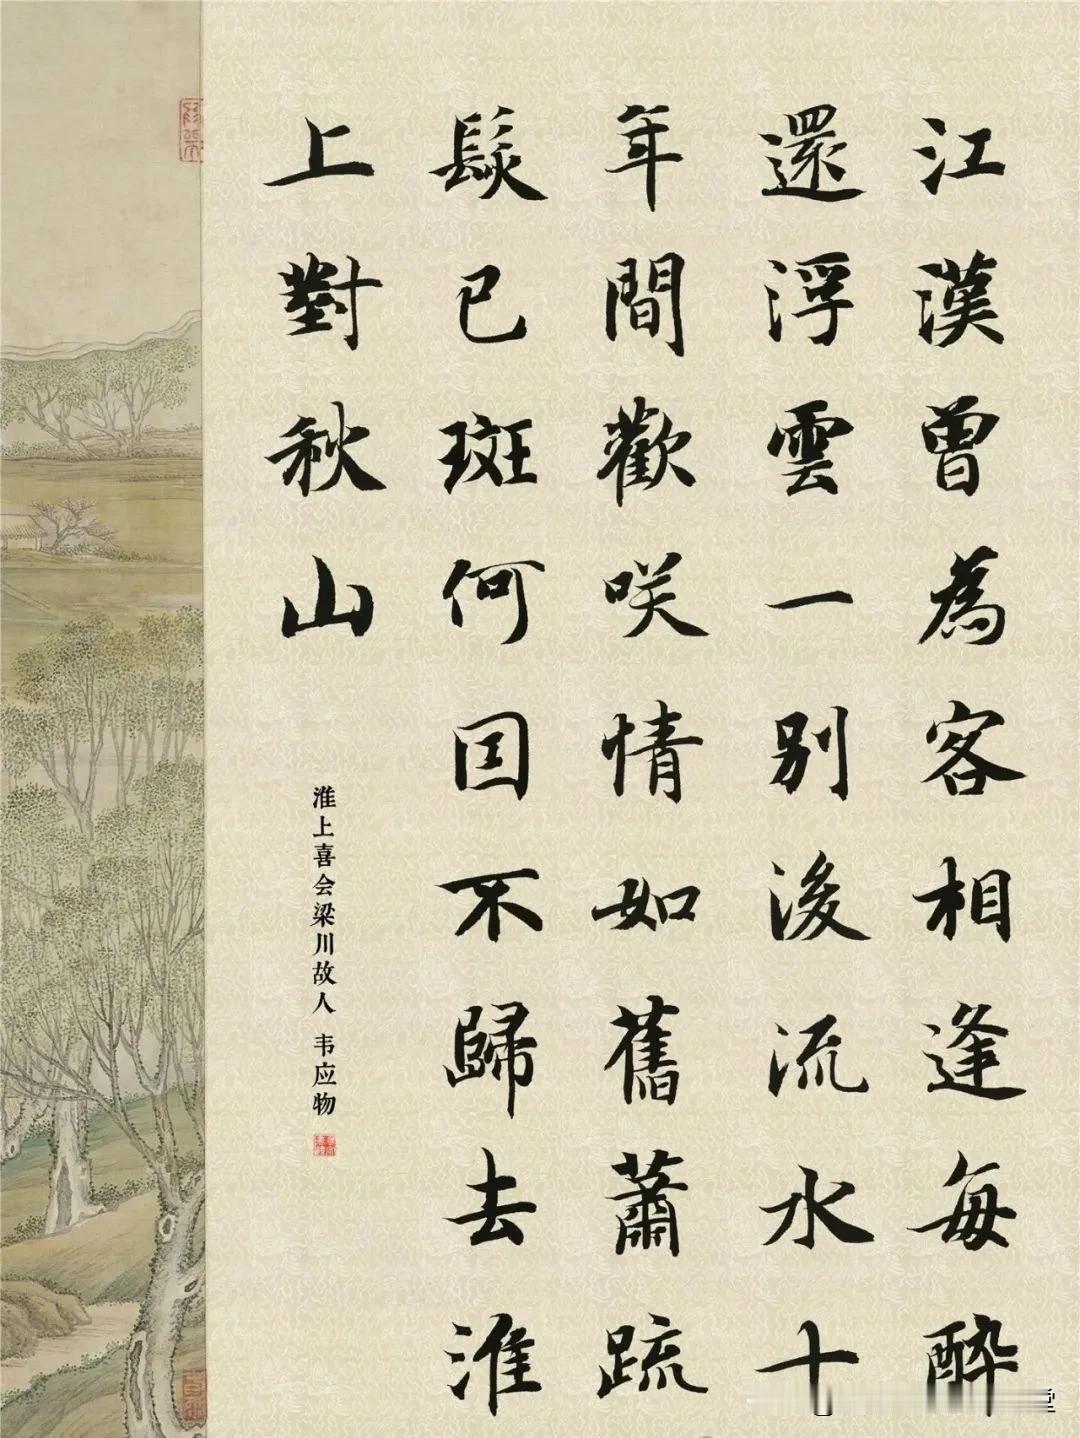 江漢曾為客相逢每醉
還浮雲一別後流水十
年間歡咲情如舊蕭疏
鬂已斑何因不歸去淮
上對秋山
淮上喜会梁川故人 韦应物